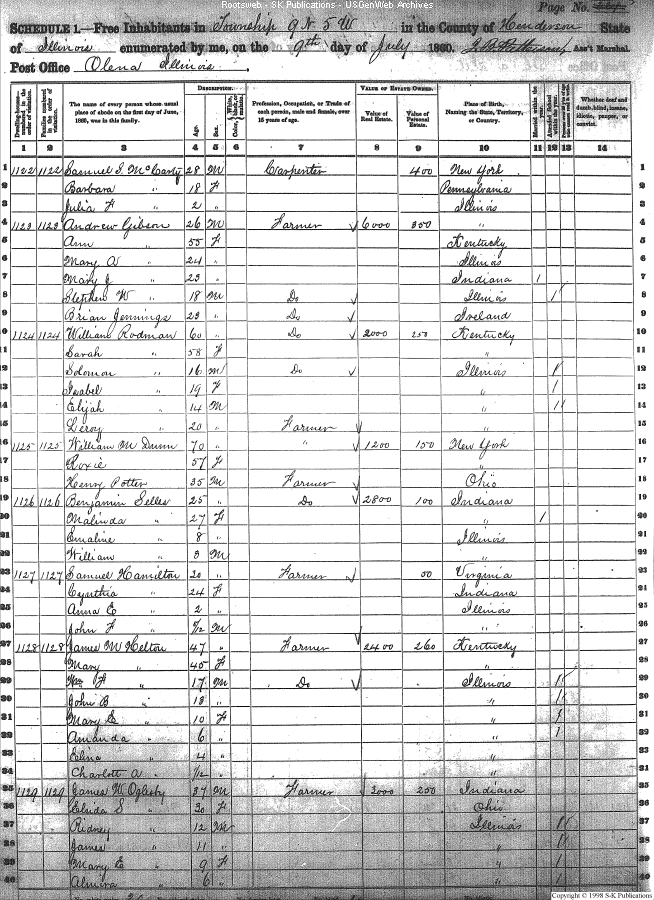 Rootsweb - SK Publications - USGenWeb Archives
Page No.
SCHEDULE 1.—Free Inhabitants in Township 9 N 5 W in the County of Henderson State
of Illinois enumerated by me, on the 9th day of July 1860. Ass't Marshal.
Post Office Olena Illinois.
DESCRIPTION. VALUE OF ESTATE OWNED.
Dwelling-houses—numbered in the order of visitation. Families numbered in the order of visitation. The name of every person whose usual place of abode on the first day of June, 1860, was in this family. Age. Sex. Color Profession, Occupation, or Trade of each person, male and female, over 15 years of age. Value of Real Estate. Value of Personal Estate. Place of Birth, Naming the State, Territory, or Country. Married within the year. Attended School within the year. Whether deaf and dumb, blind, insane, idiotic, pauper, or convict.
1 2 3 4 5 6 7 8 9 10 11 12 13 14
1 1122 1122 Samuel I. McCarty 28 M Carpenter 400 New York 1
2 Barbara " 18 F Pennsylvania 2
3 Julia F " 2 " Illinois 3
4 1123 1123 Andrew Gibson 26 M Farmer ✓ 6000 350 " 4
5 Ann " 55 F Kentucky 5
6 Mary A " 24 " Illinois 6
7 Mary J " 23 " Indiana 1 7
8 Stephen W " 18 M Do ✓ Illinois 1 8
9 Brian Jennings 23 " Do ✓ Ireland 9
10 1124 1124 William Rodman 60 " Do ✓ 2000 250 Kentucky 10
11 Sarah " 58 F " 11
12 Solomon " 16 M Do ✓ Illinois 1 12
13 Isabel " 19 F " 1 13
14 Elijah " 14 M " 1 14
15 Leroy " 20 " Farmer ✓ " 15
16 1125 1125 William M Dunn 70 " " ✓ 1200 150 New York 16
17 Roxie " 57 F " 17
18 Henry Potter 35 M Farmer ✓ Ohio 18
19 1126 1126 Benjamin Selles 25 " Do ✓ 2800 100 Indiana 19
20 Malinda " 27 F " 1 20
21 Emaline " 8 " Illinois 21
22 William " 3 M " 22
23 1127 1127 Samuel Hamilton 30 " Farmer ✓ 50 Virginia 23
24 Cynthia " 24 F Indiana 24
25 Anna E " 2 " Illinois 25
26 John F " /12 M " 26
27 1128 1128 James M Helton 47 " Farmer ✓ 2400 260 Kentucky 27
28 Mary " 45 F " 28
29 Wm F " 17 M Do ✓ Illinois 1 29
30 John B " 13 " " 1 30
31 Mary E " 10 F " 1 31
32 Amanda " 6 " " 1 32
33 Elina " 4 " " 33
34 Charlott A " /12 " " 34
35 1129 1129 James W Oglesby 37 M Farmer 3000 200 Indiana 35
36 Elnda S " 30 F Ohio 36
37 Ridney " 12 M Illinois 1 37
38 James " 11 " " 1 38
39 Mary E " 9 F " 1 39
40 Almira " 6 " " 1 40
Copyright © 1998 S-K Publications